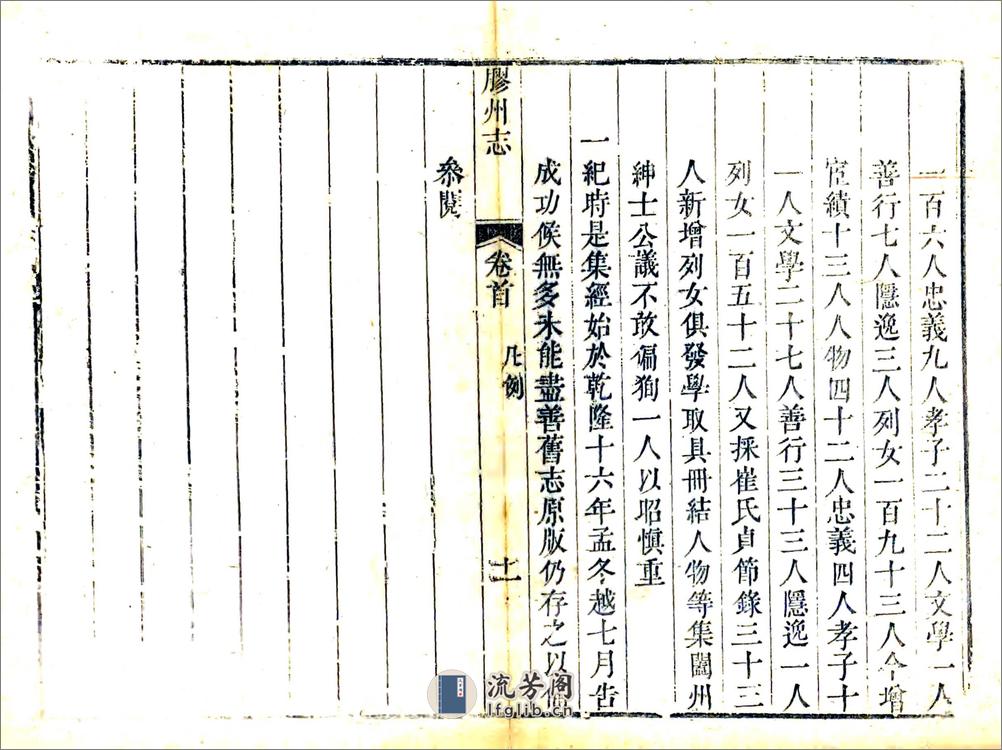 一百六人忠義九人孝子二十二人文學一人
善行七人隱逸三人列女一百九十三人今增
宦績十三人人物四十二人忠義四人孝子十
一人文學二十七人善行三十三人隱逸一人
列女一百五十二人又採崔氏貞節錄三十三
人新增列女俱發學取具冊結人物等集闔州
紳士公議不敢偏狥一人以昭愼重
一紀時是集經始於乾隆十六年孟冬越七月告
成功候無多未能盡善舊志原版仍存之以備
膠州志
卷首
凡例
十一
叅閱
流芳阁
lfglib.cn